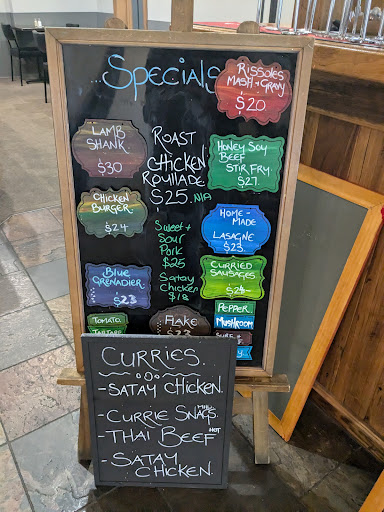 ...Specials
RISSOLES
MASH + GRAVY
$20
LAMB
SHANK
$30
ROAST
CHICKEN
ROULLADE
$25. N/A
HONEY SOY
BEEF
STIR FRY.
$27.
CHICKEN
BURGER
$24
Sweet +
Sour
Pork
$25
Satay
Chicken
$18
HOME-
MADE
LASAGNE
$23.
BLUE
GRENADIER
$23
CURRIED
SAUSAGES
TOMATO
TARTARE
FLAKE
$23
PEPPER
MUSHROOM
CURRIES.
- SATAY CHICKEN.
- CURRIE SNAGS. MILD
- THAI BEEF HOT
SATAY
CHICKEN.